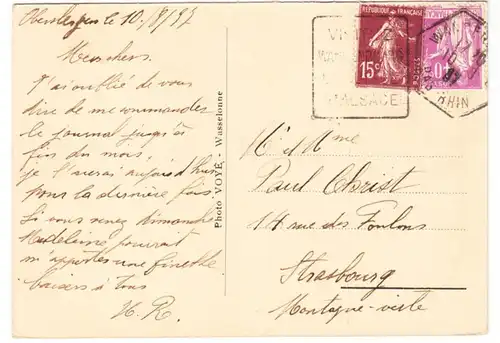 Oberstergen le 10/8/37
Mes chers,
J'ai oublié de vous
dire de me commander
le journal jusqu'à
fin du mois,
je l'aurai aujourd'hui
pour la dernière fois.
Si vous venez dimanche
Madeleine pourrait
m'apporter une
baisers à Tous
H. R.
Photo VOYÉ - Wasselonne
RÉPUBLIQUE FRANÇAISE
15c
POSTES
VISITEZ
WASSELONNE
D'ALSACE
RHIN
M. et Mme
Paul Christ
14 rue des Foulons
Strasbourg
Montagne-verte